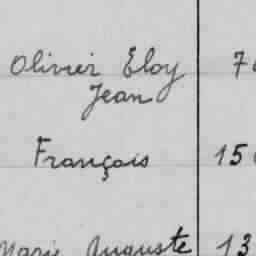 Olivier Eloy 7
Jean
François 15
Marie Auguste 13